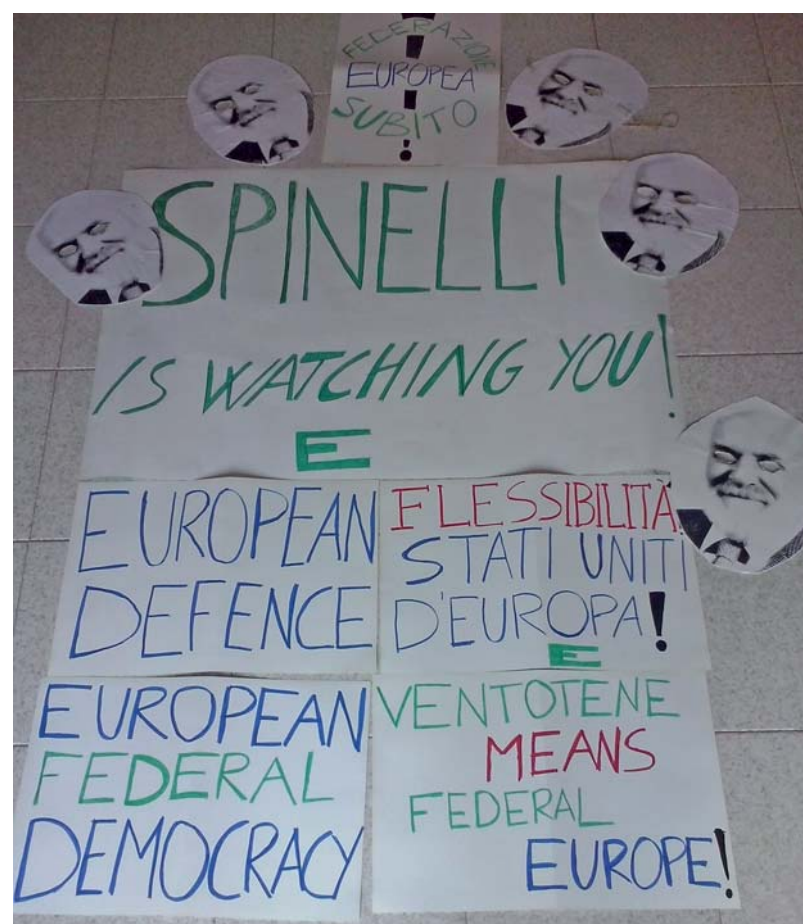 FEDERAZIONE
EUROPEA
SUBITO
!
SPINELLI
IS WATCHING YOU!
E
EUROPEAN
DEFENCE
FLESSIBILITÀ
STATI UNITI
D'EUROPA!
E
EUROPEAN
FEDERAL
DEMOCRACY
VENTOTENE
MEANS
FEDERAL
EUROPE!